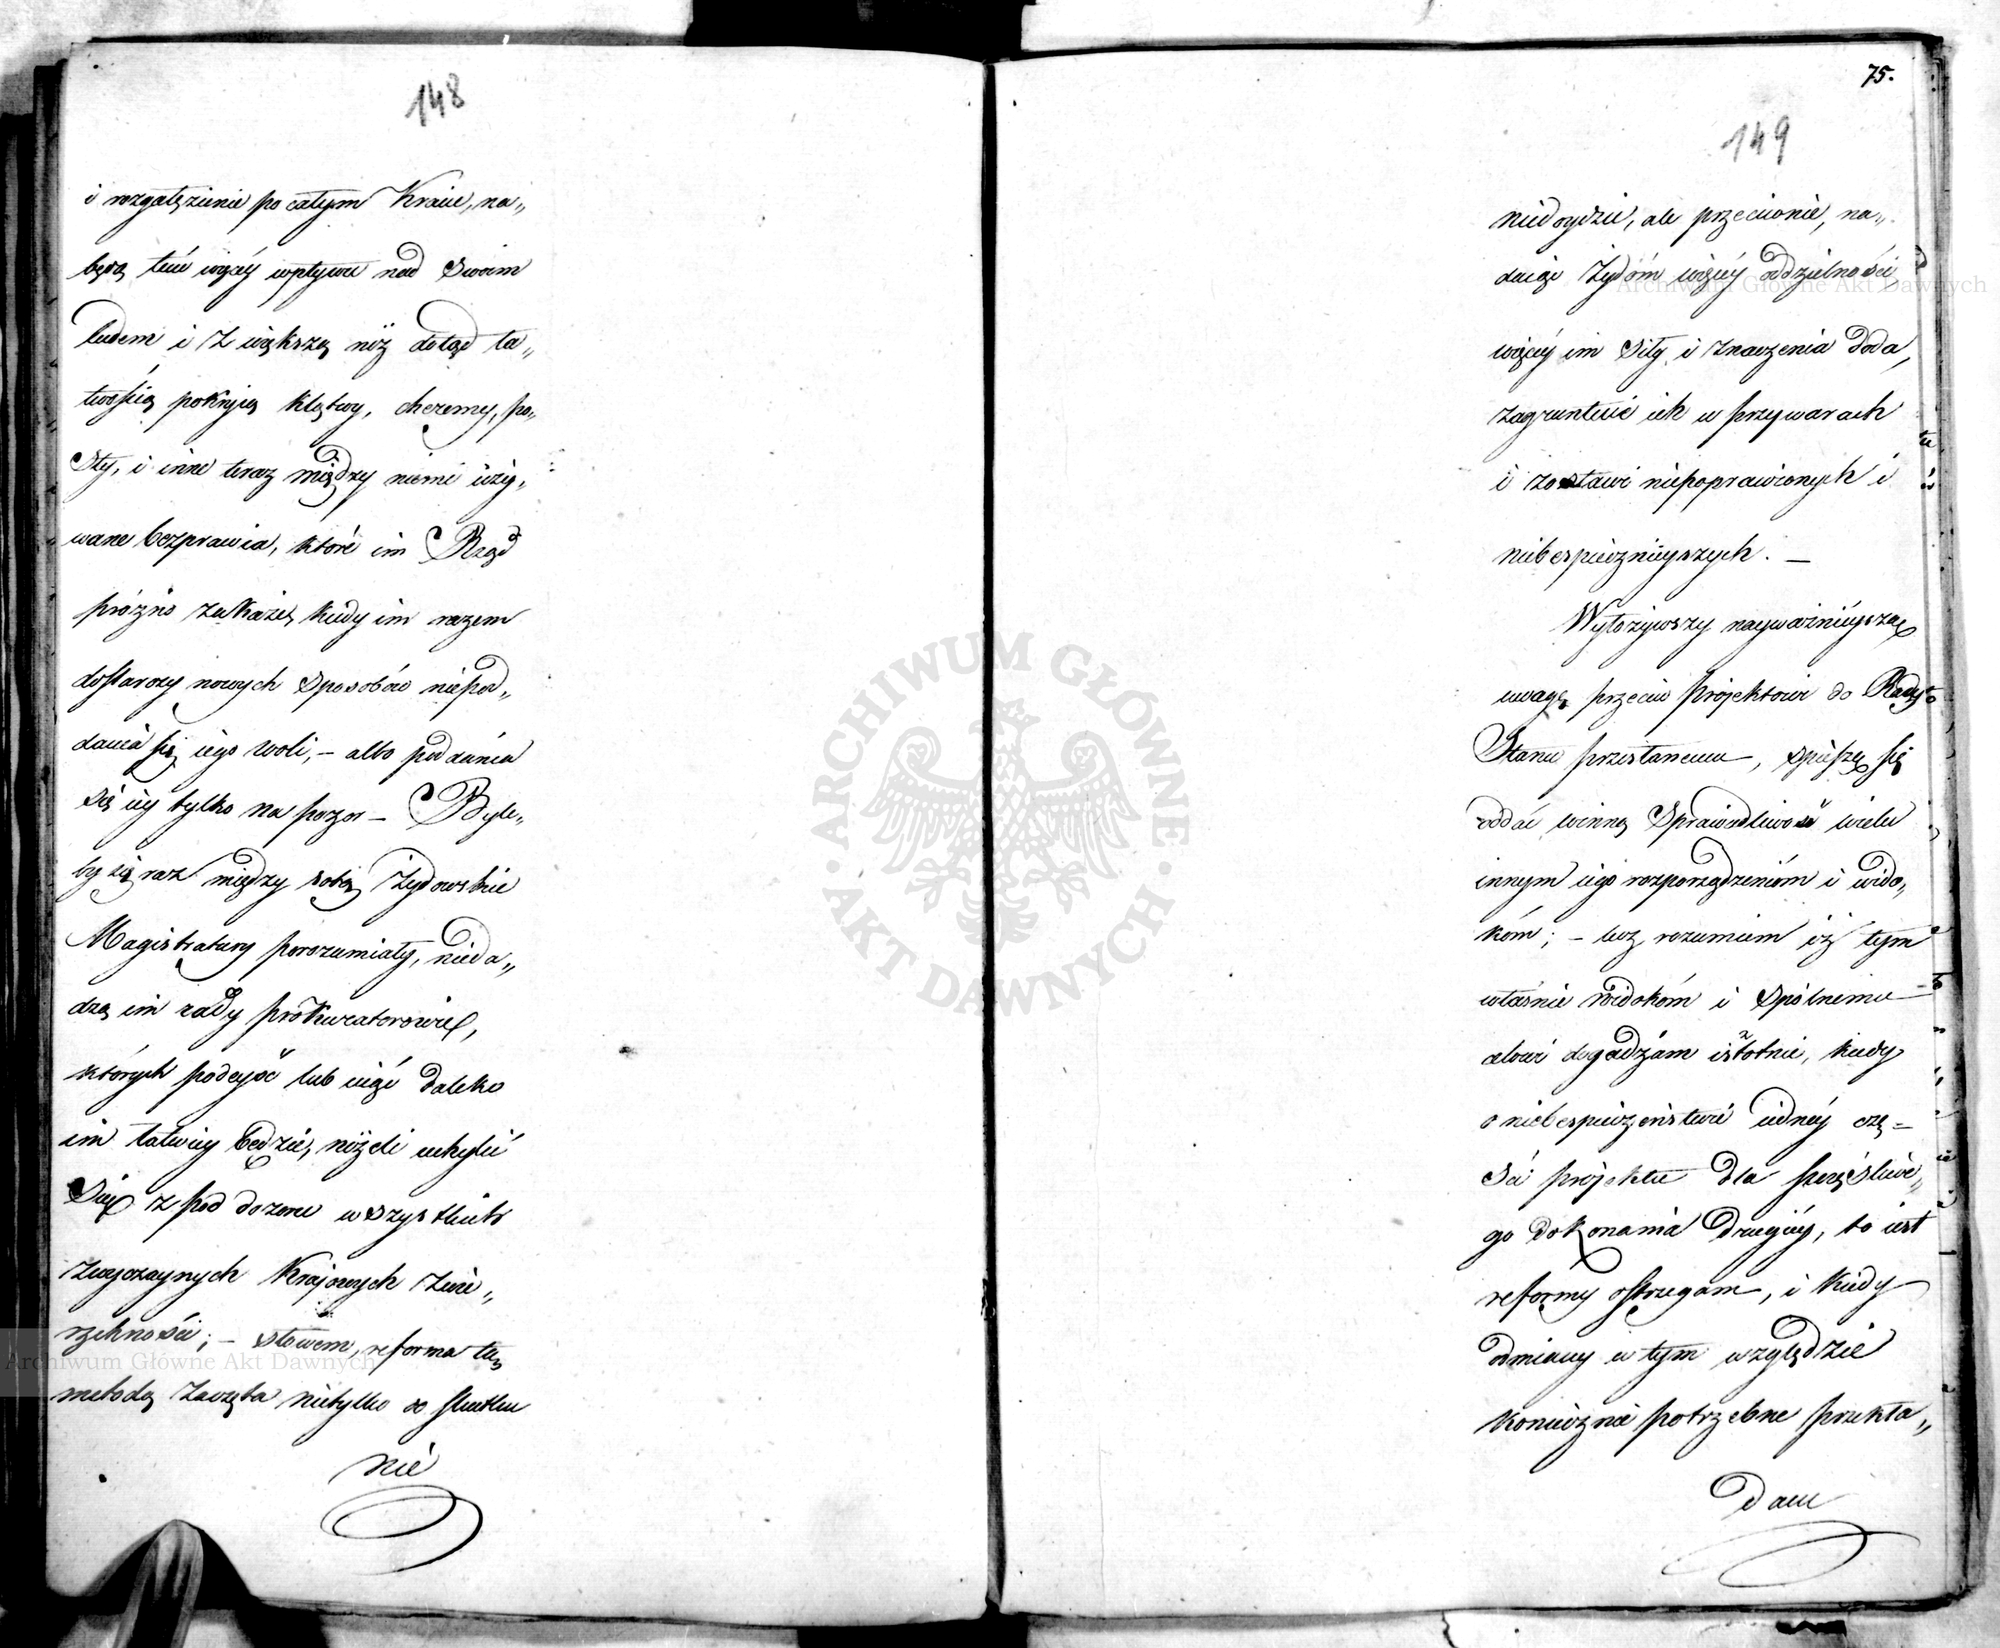 148
i rozgałęzienie po całym Kraiu, na„
będą też więcéy wpływu nad Swoim
ludem i z większą niż dotąd ła„
twością pokryią klątwy, cheremy, po„
sty, i inne teraz między niemi uży„
wane bezprawia, które im Rząd
próżno zakaże, kiedy im razem
dostarczy nowych sposobów niepod„
dania się iego woli, – albo poddania
się iéy tylko na pozor – Byle„
by się raz między sobą Żydowskie
Magistratury porozumiały, nieda„
dzą im rady prokuratorowie,
których podeyść lub ująć daleko
im łatwiéy będzie, niżeli uchylić
Się z pod dozoru wszystkich
zwyczaynych Krajowych zwie„
rzchności; – słowem, reforma tą
metodą zaczęta nietylko do skutku
nie
75.
149
niedoydzie, ale przeciwnie, na„
daiąc Żydóm więcéy oddzielności
więcéy im Siły i znaczenia doda,
zagruntuie ich w przywarach
i zostawi niepoprawionych i
niebespiecznieyszych. –
Wyłożywszy nayważnieyszą
uwagę przeciw projektowi do Rady
Stanu przesłanemu, spieszę się
oddać winną Sprawiedliwość wielu
innym iego rozporządzenióm i wido„
kóm; – lecz rozumiem iż tym
właśnie widokóm i Spólnemu
celowi dogadzam istotnie, kiedy
o niebespieczeństwie iednéy czę=
ści projektu dla szczęśliwe„
go dokonania drugiéy, to iest
reformy ostrzegam, i kiedy
odmiany w tym względzie
koniecznie potrzebne przekła„
dam
Archiwum Główne Akt Dawnych
Archiwum Główne Akt Dawnych
· ARCHIWUM GŁÓWNE · AKT DAWNYCH